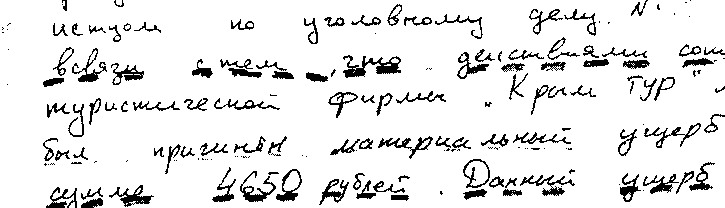 истцом по уголовному делу N
всвязи с тем, что действиями сот
туристической фирмы "Крым Тур"
был причинён материальный ущерб
сумме 4650 рублей. Данный ущерб